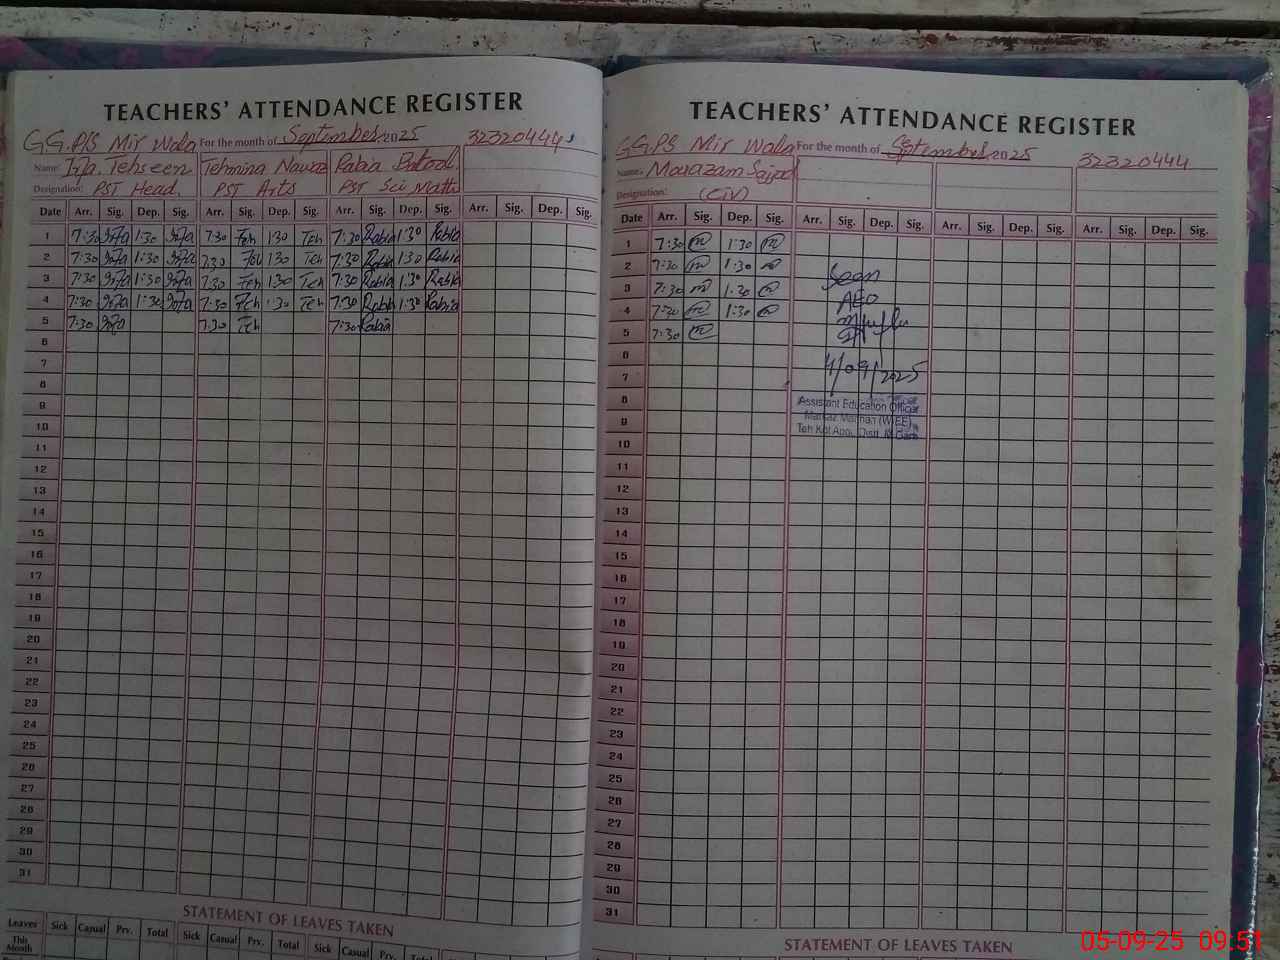 TEACHERS' ATTENDANCE REGISTER
G.G.P/S Mir Wala For the month of September 2025 32320444
Name: Irfa Tehseen Tehmina Nawaz Rabia Batool
Designation: PST Head. PST Arts PST Sci Math
Date Arr. Sig. Dep. Sig. Arr. Sig. Dep. Sig. Arr. Sig. Dep. Sig. Arr. Sig. Dep. Sig.
1 7:30 Irfa 1:30 Irfa 7:30 Teh 1:30 Teh 7:30 Rabia 1:30 Rabia
2 7:30 Irfa 1:30 Irfa 7:30 Teh 1:30 Teh 7:30 Rabia 1:30 Rabia
3 7:30 Irfa 1:30 Irfa 7:30 Teh 1:30 Teh 7:30 Rabia 1:30 Rabia
4 7:30 Irfa 1:30 Irfa 7:30 Teh 1:30 Teh 7:30 Rabia 1:30 Rabia
5 7:30 Irfa 7:30 Teh 7:30 Rabia
6
7
8
9
10
11
12
13
14
15
16
17
18
19
20
21
22
23
24
25
26
27
28
29
30
31
STATEMENT OF LEAVES TAKEN
Leaves Sick Casual Prv. Total Sick Casual Prv. Total Sick Casual Prv.
This
Month
TEACHERS' ATTENDANCE REGISTER
G.G.P/S Mir Wala For the month of September 2025 32320444
Name: Moazam Sajjad
Designation: (CIV)
Date Arr. Sig. Dep. Sig. Arr. Sig. Dep. Sig. Arr. Sig. Dep. Sig. Arr. Sig. Dep. Sig.
1 7:30 m 1:30 m
2 7:30 m 1:30 m
3 7:30 m 1:30 m
4 7:30 m 1:30 m
5 7:30 m
6
7
8
9
10
11
12
13
14
15
16
17
18
19
20
21
22
23
24
25
26
27
28
29
30
31
Seen
AEO
4/09/2025
Assistant Education Officer
Markaz (W-EE)
Teh Kot Addu, Distt. M.Garh
STATEMENT OF LEAVES TAKEN
05-09-25 09:51